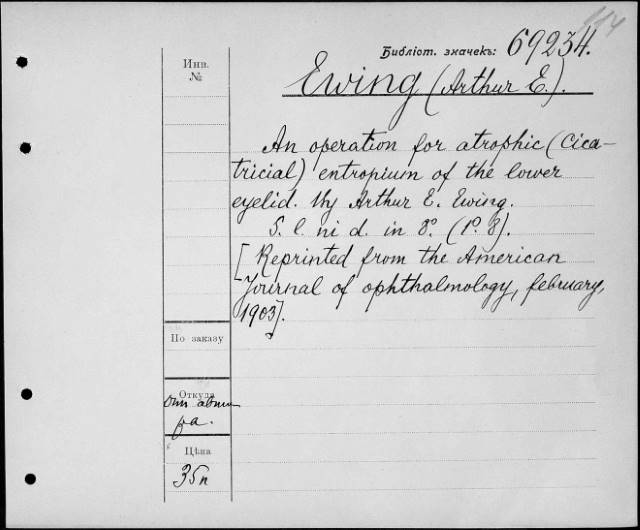 114
Библіот. значекъ: 69234.
Инв.
№
Ewing (Arthur E.).
An operation for atrophic (Cica-
tricial) entropium of the lower
eyelid. By Arthur E. Ewing.
S. l. ni d. in 8º. (1º. 8).
[Reprinted from the American
Journal of ophthalmology, february,
1903].
По заказу
Откуда
Отъ автора.
Цѣна
35к